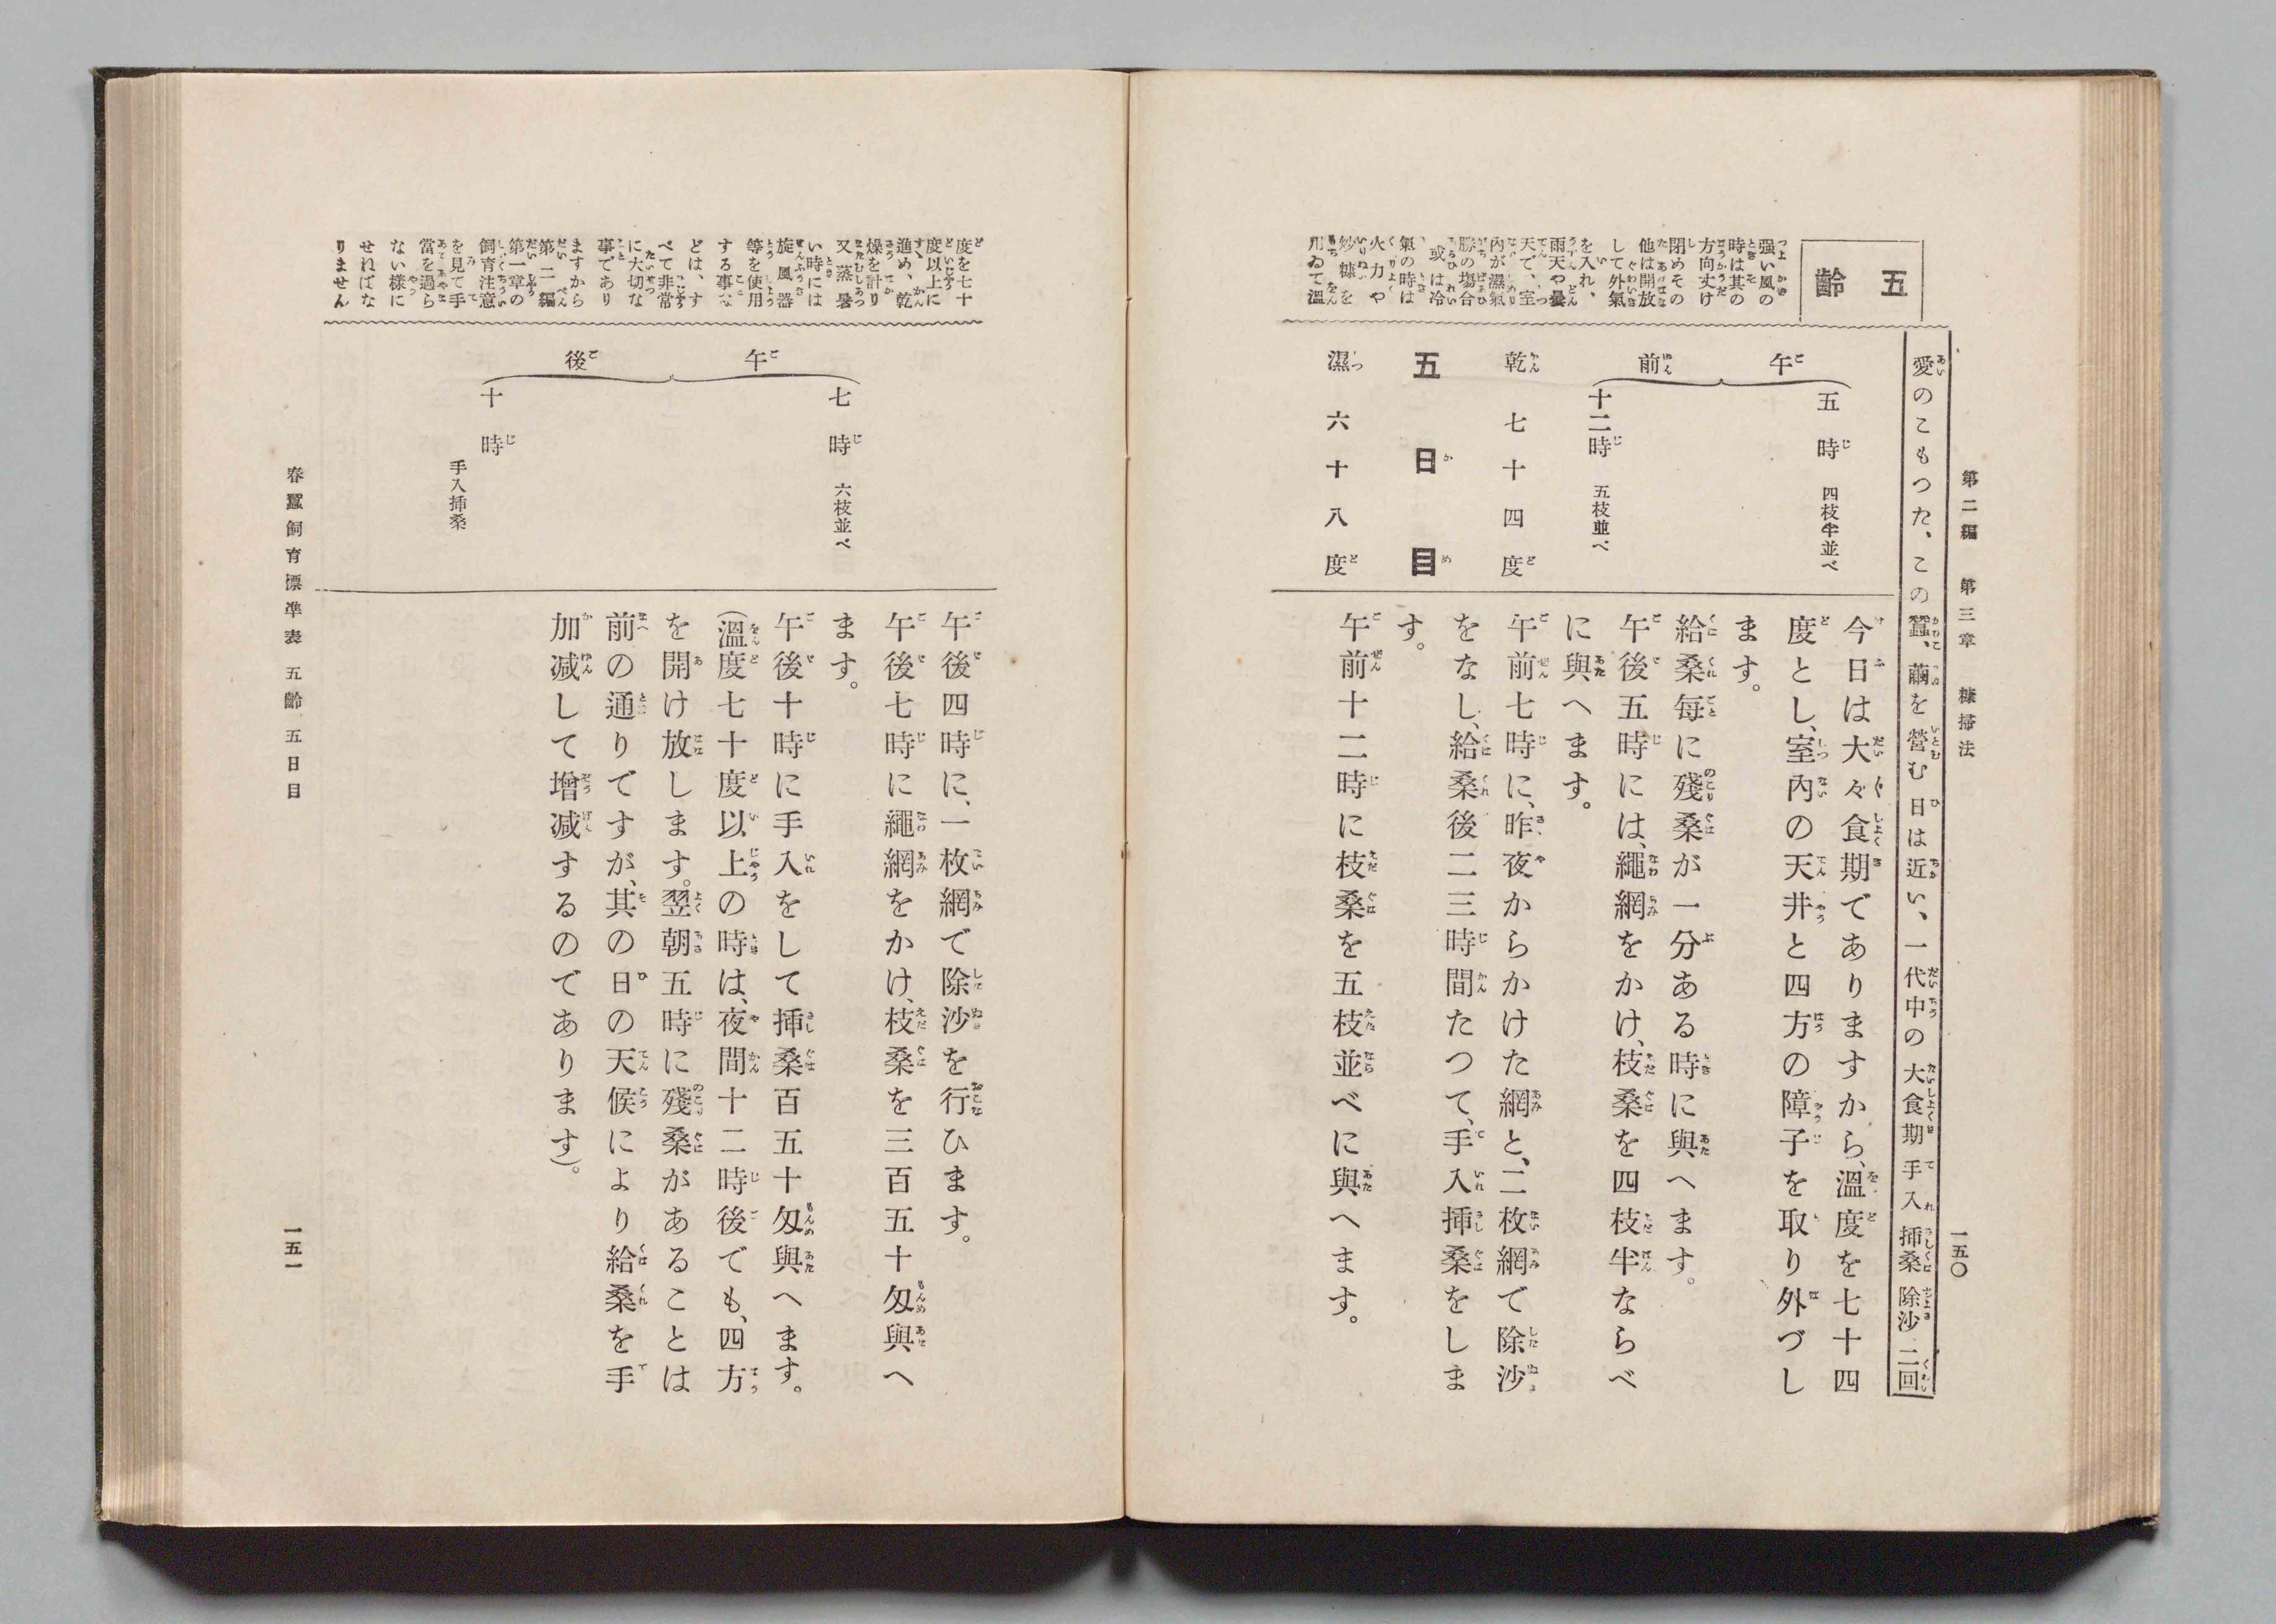 第二編　第三章　糠掃法
一五〇
五齡
强い風の
時は其の
方向丈け
閉めその
他は開放
して外氣
を入れ、
雨天や曇
天で、室
內が濕氣
勝の場合
或は冷
氣の時は
火力や
炒糠を
用ゐて溫
愛のこもつた、この蠶、繭を營む日は近い、一代中の大食期手入揷桑除沙二回
午前
五時　四枝半並べ
十二時　五枝並べ
乾　七十四度
五日目
濕　六十八度
今日は大々食期でありますから、溫度を七十四
度とし、室內の天井と四方の障子を取り外づし
ます。
給桑每に殘桑が一分ある時に與へます。
午後五時には、繩網をかけ、枝桑を四枝半ならべ
に與へます。
午前七時に、昨夜からかけた網と、二枚網で除沙
をなし、給桑後二三時間たつて、手入揷桑をしま
す。
午前十二時に枝桑を五枝並べに與へます。
度を七十
度以上に
進め、乾
燥を計り
又蒸暑
い時には
旋風器
等を使用
する事な
どは、す
べて非常
に大切な
事であり
ますから
第二編
第一章の
飼育注意
を見て手
當を過ら
ない樣に
せねばな
りません
午後
七時　六枝並べ
十時
手入揷桑
午後四時に、一枚網で除沙を行ひます。
午後七時に繩網をかけ、枝桑を三百五十匁與へ
ます。
午後十時に手入をして揷桑百五十匁與へます。
(溫度七十度以上の時は、夜間十二時後でも、四方
を開け放します。翌朝五時に殘桑があることは
前の通りですが、其の日の天候により給桑を手
加减して增减するのであります)。
春蠶飼育標準表　五齡　五日目
一五一